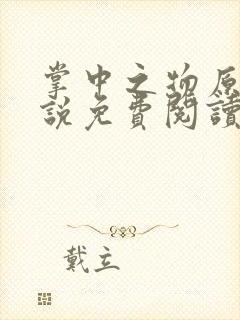 掌中之物原
説免費閱讀
戴立